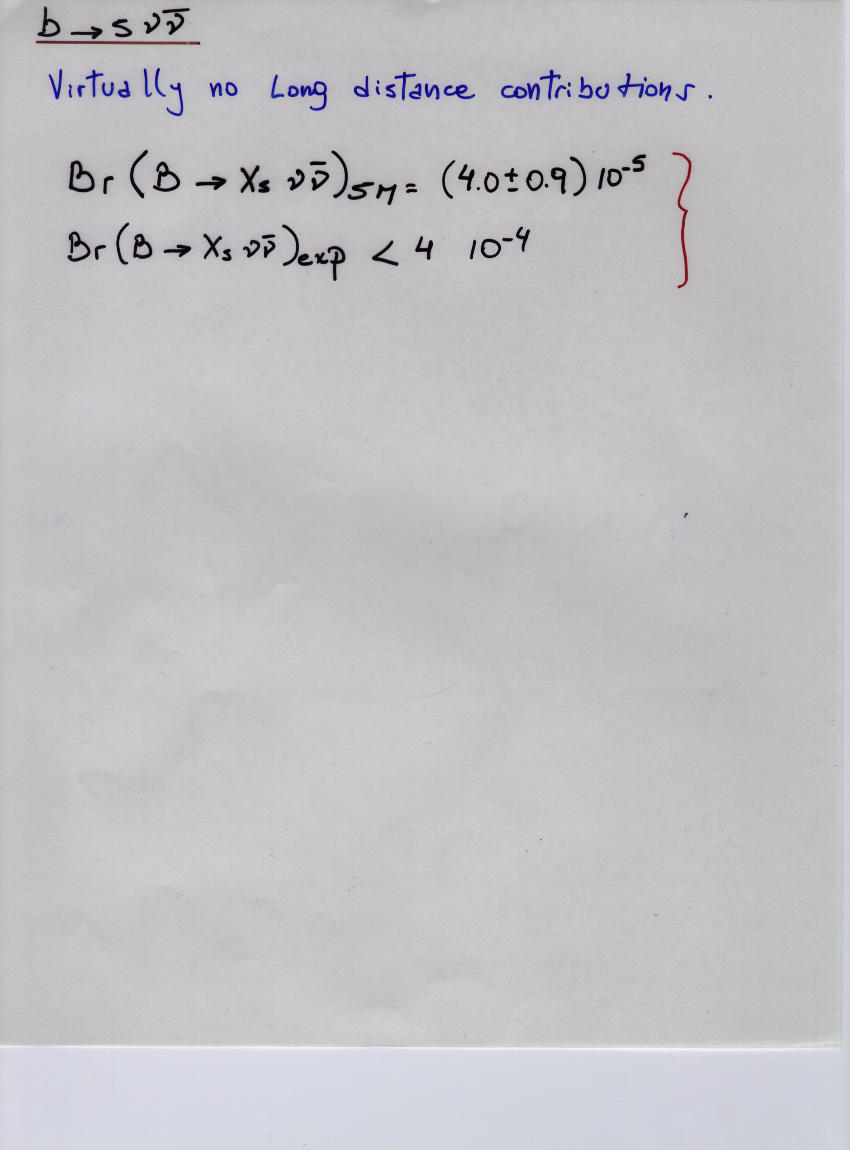 b → s νν̄
Virtually no Long distance contributions.
Br (B → Xs νν̄)SM = (4.0 ± 0.9) 10⁻⁵
Br (B → Xs νν̄)exp < 4 10⁻⁴